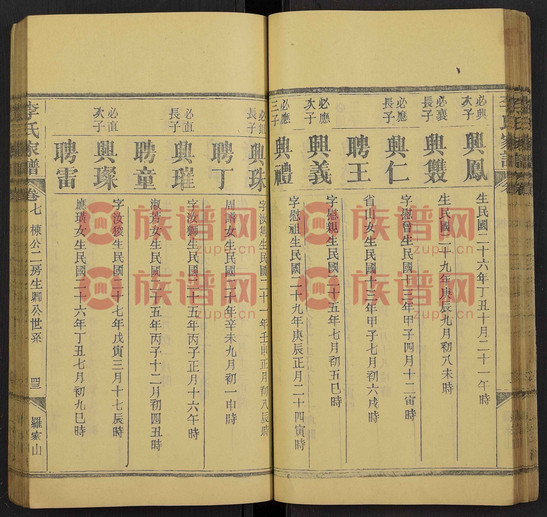 必興
次子
興鳳
生民國二十六年丁丑十月二十一午時
必襄
長子
興䨇
生民國二十九年庚辰九月初八未時
必應
長子
興仁
字慰曾生民國十三年甲子四月十二寅時
聘王
省山女生民國十三年甲子六月初六戌時
必應
次子
興義
字慰親生民國 年 五月初五巳時
必應
三子
興禮
字慰祖生民國二十九年庚辰正月二十四寅時
長子
興珠
字汝 生民國二十 年壬 正月初八辰時
聘丁
周 女生民國二十年辛未九月初一申時
必直
長子
興璀
字汝 生民國二十五年丙子正月十六午時
聘童
淑 女生民國二十五年丙子十二月初四丑時
必直
次子
興璨
字汝 生民國二十七年戊寅三月十七辰時
聘雷
應 女生民國二十六年丁丑七月初九巳時
李氏家譜
卷七
棟公二房生 公世系
羅家山
族谱网
zupu.cn